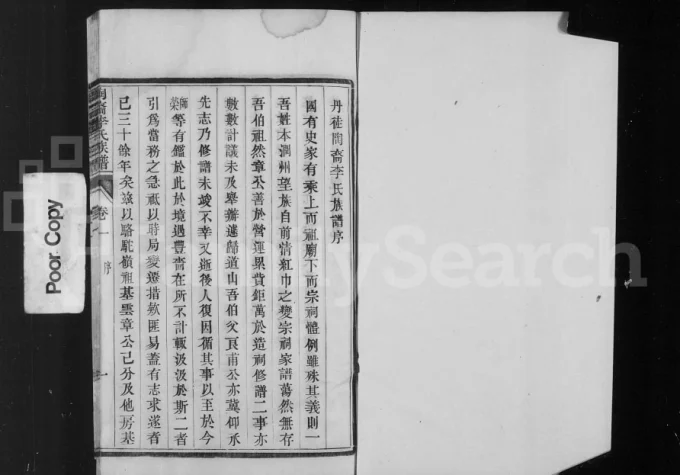 丹徒陶裔李氏族譜序
國有史家有乘上而祖廟下而宗祠體例雖殊其義則一
吾姓本潤州望族自前清紅巾之變宗祠家譜蕩然無存
吾伯祖然章公善於營運累貲鉅萬於造祠修譜二事亦
數數計議未及舉辦遽歸道山吾伯父良甫公亦冀仰承
先志乃修譜未竣不幸又逝後人復因循其事以至於今
錦榮等有鑑於此於境遇豐嗇在所不計輒汲汲於斯二者
引為當務之急祇以時局變遷措款匪易蓋有志求遂者
已三十餘年矣茲以駱駝嶺祖基雲章公己分及他房基
陶裔李氏族譜 卷一 序 一
Poor Copy
FamilySearch